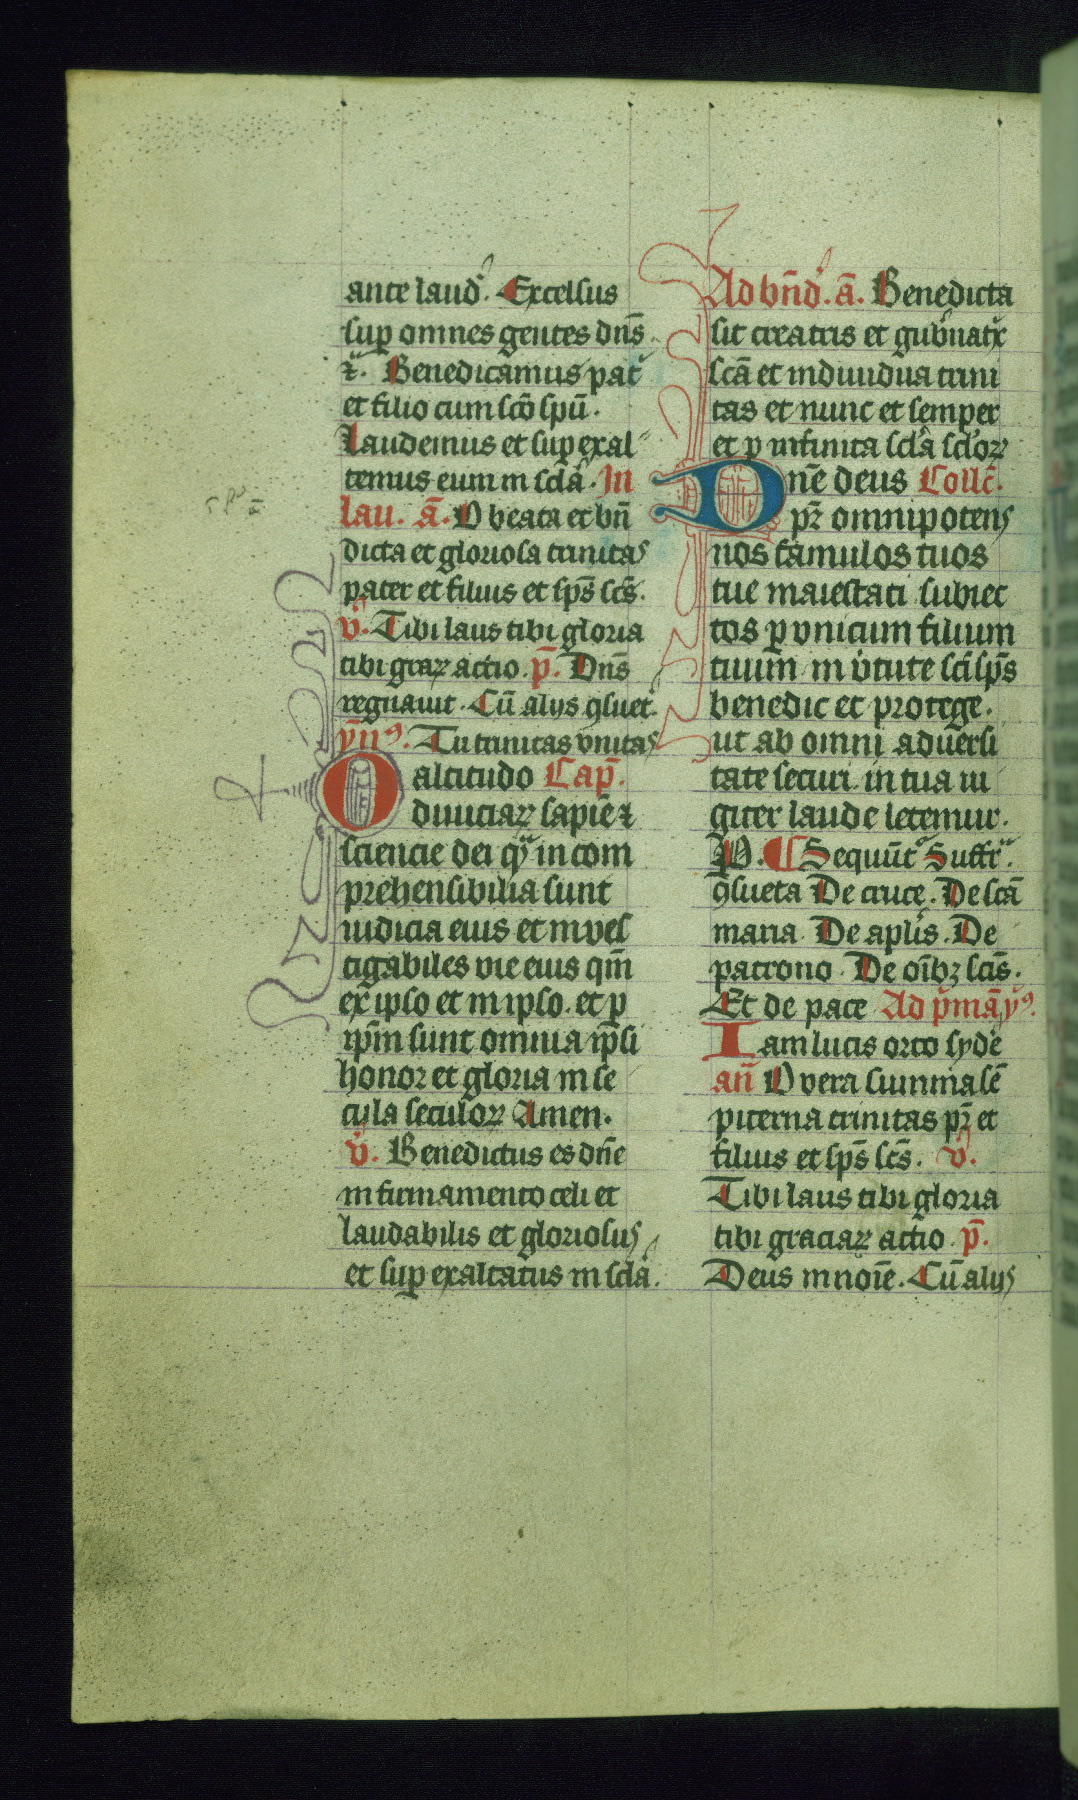 ante laud̾. Excelsus
suꝑ omnes gentes dn̄s
⁊c̃. Benedicamus pat̾
et filio cum sc̄o sp̄u.
Laudemus et suꝑ exal
temus eum in scl̾a. In
lau. ā. O beata et bn̄
dicta et gloriosa trinitas
pater et filius et sp̄s sc̄s.
v̾. Tibi laus tibi gloria
tibi graꝝ actio. p̄. Dn̄s
regnauit. Cū alijs ꝯsuet̾.
ymꝰ. Tu trinitas vnitas
O altitudo Cap̄.
diuiciaꝝ sapiē ⁊
sciencie dei qᷓ incom
prehensibilia sunt
iudicia eius et inues
tigabiles vie eius qm̄
ex ipso et in ipso. et ꝑ
ip̄m sunt omnia ip̄si
honor et gloria in se
cula seculoꝝ Amen.
v̾. Benedictus es dn̄e
in firmamento celi et
laudabilis et gloriosus
et suꝑ exaltatus in scl̾a.
Ad bn̄d̾. ā. Benedicta
sit creatrix et gub̾natͥx
sc̄a et indiuidua trini
tas et nunc et semper
et ꝑ infinita scl̾a scl̾oꝝ
Dn̄e deus Coll̄c.
pr̄ omnipotens
nos famulos tuos
tue maiestati subiec
tos ꝑ vnicum filium
tuum in v̾tute sc̄i sp̄s
benedic et protege.
ut ab omni aduersi
tate securi in tua iu
giter laude letemur.
P. ¶ Sequūt̾ Suffrᷓ.
ꝯsueta De cruce. De sc̄a
maria. De apl̾is. De
patrono. De oīb₃ sc̄is.
Et de pace Ad p̾mā yꝰ.
Iam lucis orto syde̾
an̄ O vera summa sē
piterna trinitas pr̄ et
filius et sp̄s sc̄s. v̾.
Tibi laus tibi gloria
tibi graciaꝝ actio. p̄.
Deus in noīe. Cū alijs